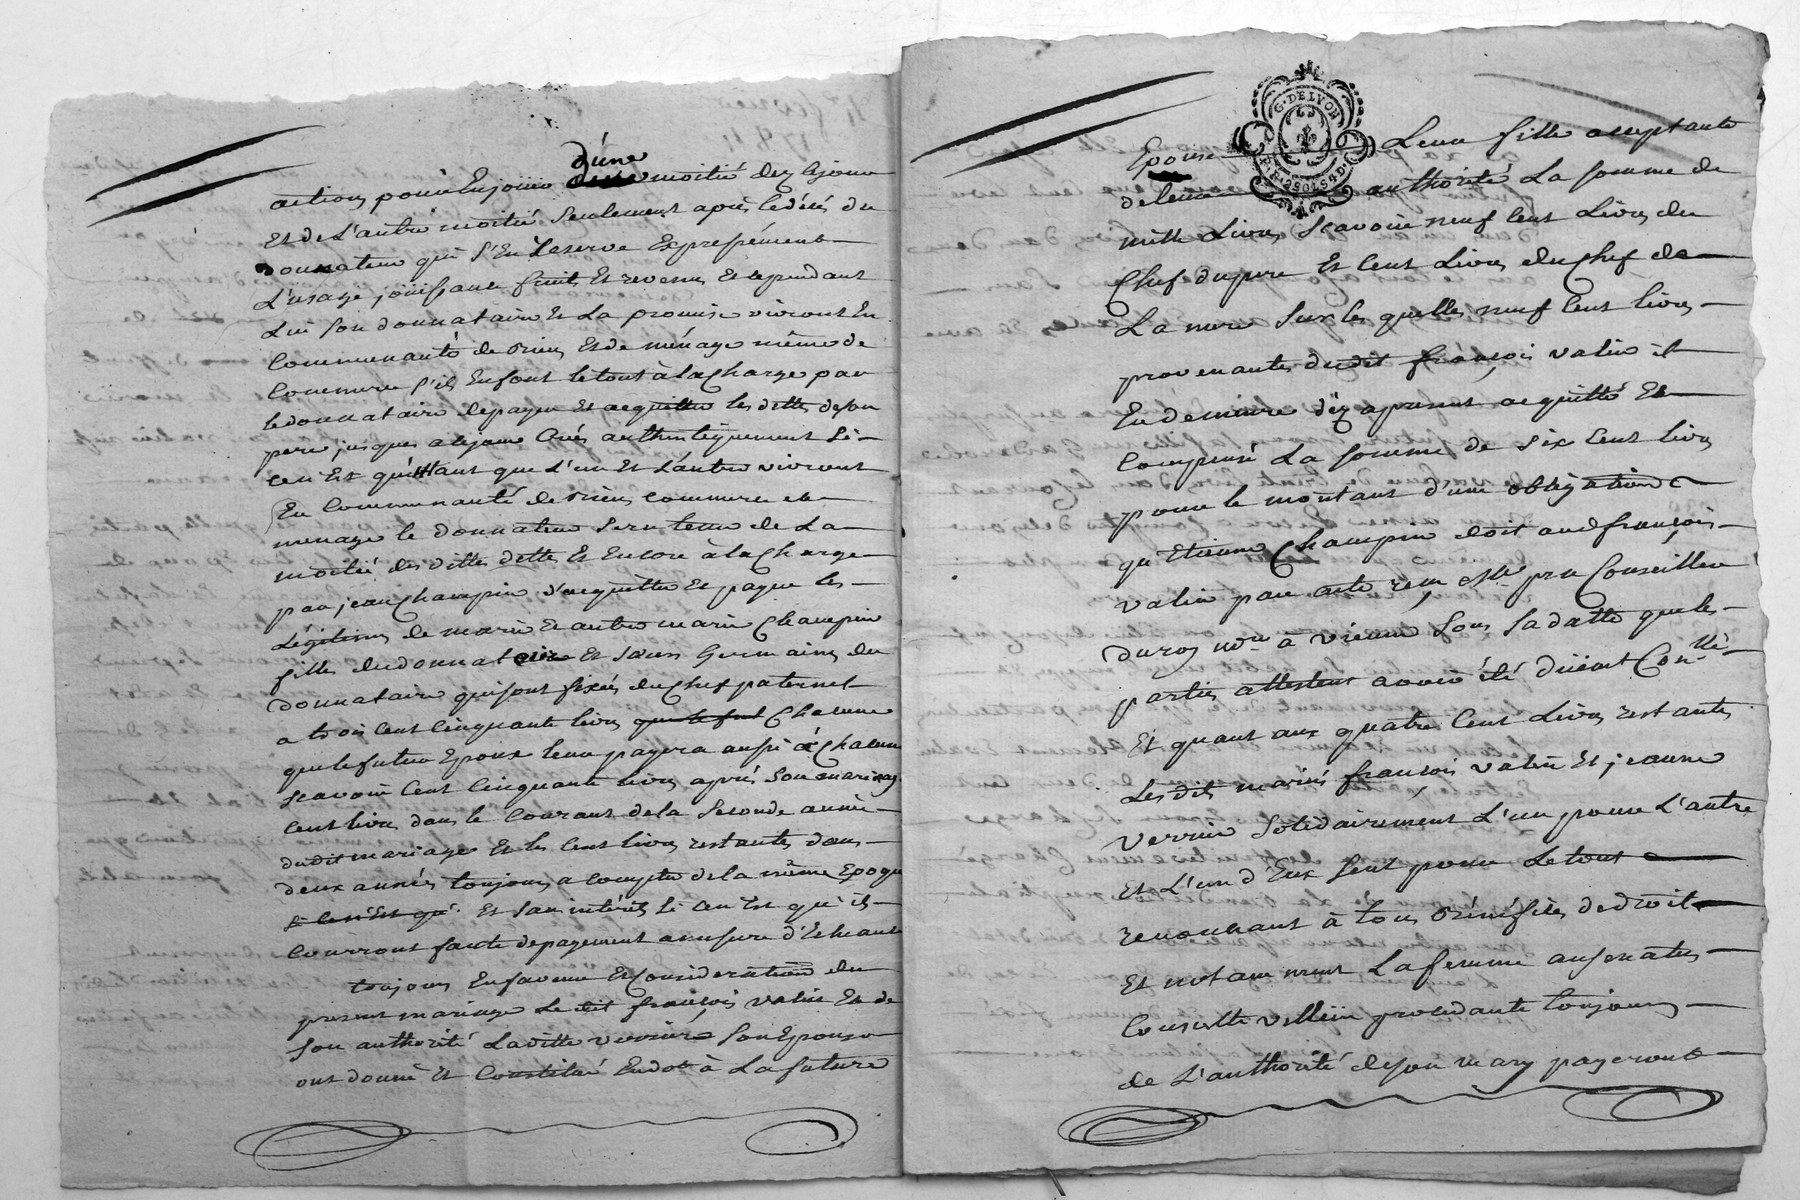 d'une
actions pour En joüir moitié dez cejour
Et de L'autre moitié seulement après le décés du
donnateur qui s'En Reserve Expressément
L'usage joüissance fruits Et revenus Et cependant
Lui son donnataire Et La promise vivront En
Communauté de Biens Et de ménage même de
Commerce s'ils En font le tout à la Charge par
le donnataire de payer Et acquitter les dettes de son
pere jusques a ce jour Créés authentiquement si
ce n'Est qu'étant que L'un Et L'autre vivront
En Communauté de Biens commerce et
menage le donnateur sera tenu de La
moitié des dittes dettes Et Encore à la Charge
par jean Champin d'acquitter Et payer les
Légitimes de marie Et autre marie Champin
filles du donnateur Et sœurs Germaines du
donnataire qui sont fixées du Chef paternel
a trois cent Cinquante livres Chacune
que le futur Epoux leur payera aussi à Chacune
scavoir Cent Cinquante livres après son mariage
Cent livres dans le Courant de la Seconde année
dudit mariage Et les Cent livres restantes dans
deux années toujours a compter de la même Epoque
Et sans intérêts si ce n'Est qu'ils
Courront faute de payement a mesure d'Echeance
toujours En faveur Et Considération du
present mariage Le dit françois valin Et de
son authorité La ditte verrier son Epouse
ont donné Et Constitué En dot à La future
G. DE LYON
Epouse Leur fille acceptante
de leur authorité La somme de
mille Livres scavoir neuf Cent Livres du
Chef du pere Et Cent Livres du Chef de
La mere sur les quelles neuf Cent livres
provenantes dudit françois valin il
En demeure déz apresent acquitté Et
Compensé La somme de six Cent livres
pour le montant d'une obligation
qu'Etienne Champin doit aud françois
valin par acte reçu pru Conseiller
du roy nore à vienne sous sa datte que les
parties attestent avoir été düement Conllé
Et quant aux quatre Cent Livres restantes
Les dits mariés françois valin Et jeanne
verrier solidairement L'un pour L'autre
Et L'un d'Eux seul pour Le tout
renonçant à tous Bénéfices de droit
Et notamment La femme au senatus
Consulte velleïen procedante toujours
de L'authorité de son mary payeront